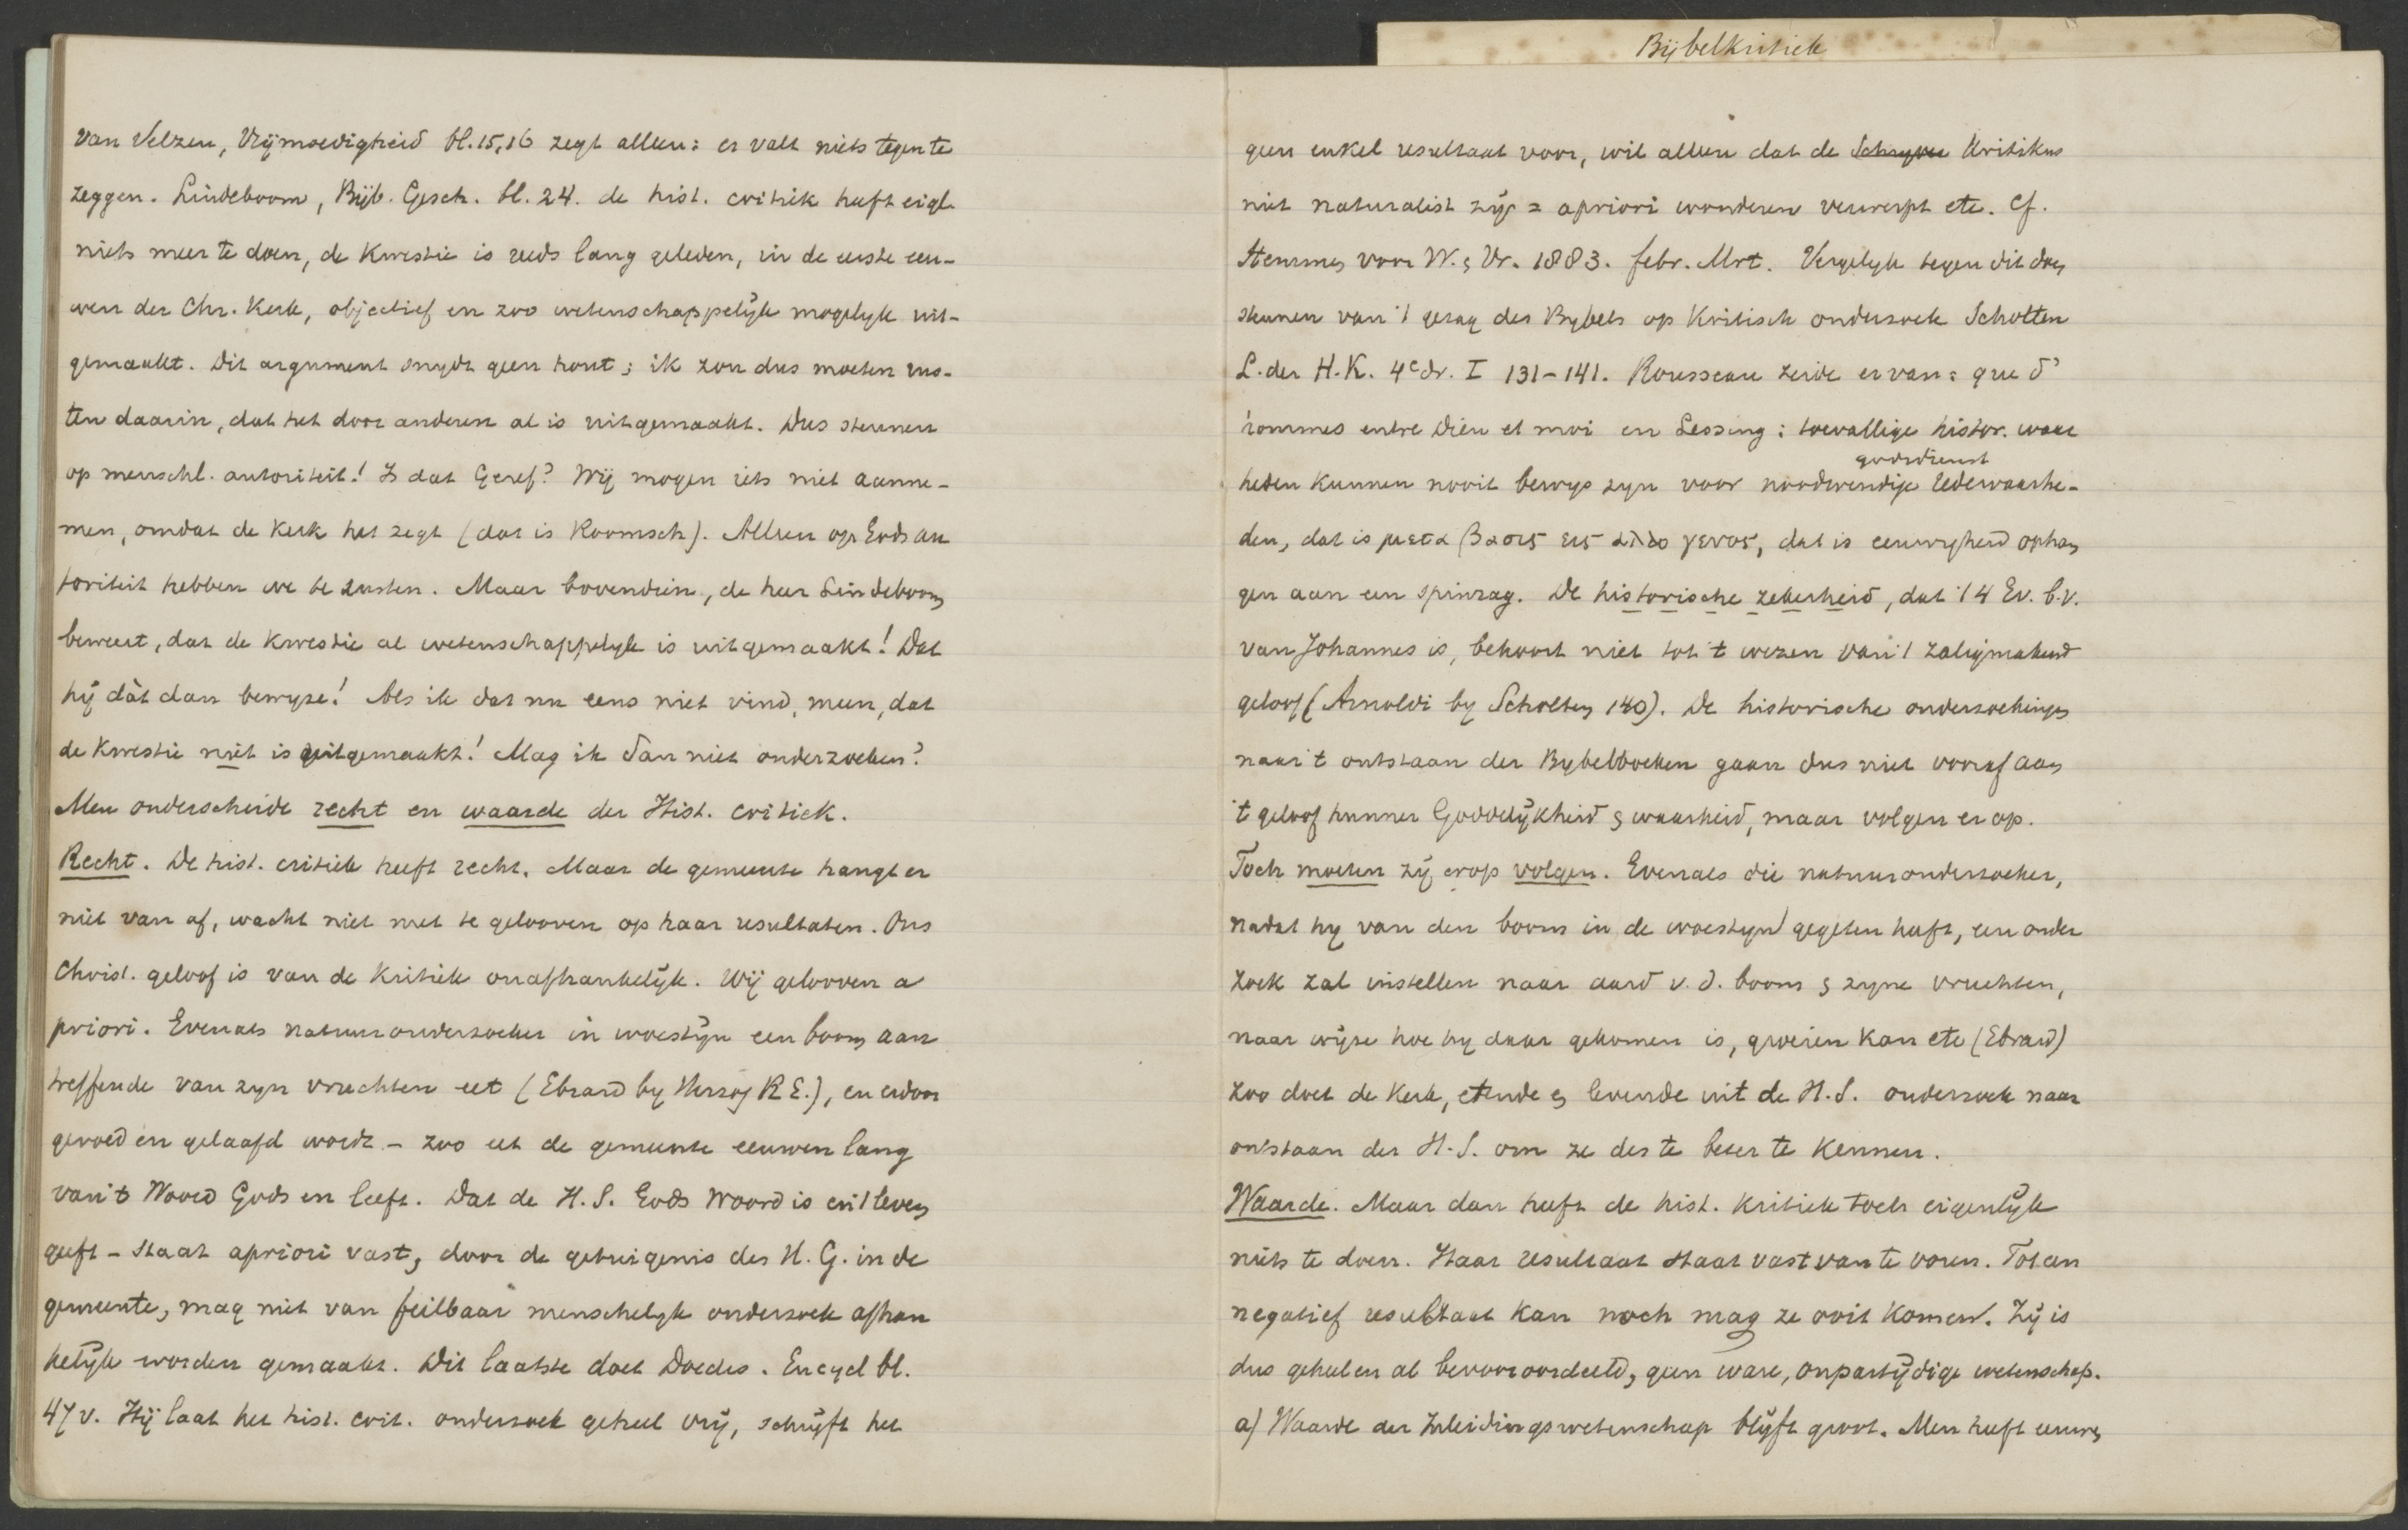 van Velzen, Vrijmoedigheid bl. 15,16 zegt alleen: er valt niets tegen te
zeggen. Lindeboom, Bijb. Gesch. bl. 24. de hist. critiek heeft eigl.
niets meer te doen, de kwestie is reeds lang geleden, in de eerste eeu-
wen der Chr. Kerk, objectief en zoo wetenschappelijk mogelyk uit-
gemaakt. Dit argument snydt geen hout; ik zou dus moeten rus-
ten daarin, dat het door anderen al is uitgemaakt. Dus steunen
op menschl. autoriteit! Is dat Geref? Wij mogen iets niet aanne-
men, omdat de Kerk het zegt (dat is Roomsch). Alleen op Gods au
toriteit hebben we te rusten. Maar bovendien, de heer Lindeboom
beweert, dat de kwestie al wetenschappelyk is uitgemaakt! Dat
hij dàt dan bewyze! Als ik dat nu eens niet vind, meen, dat
de kwestie niet is uitgemaakt! Mag ik dan niet onderzoeken?
Men onderscheide recht en waarde der Hist. critiek.
Recht. De hist. critiek heeft recht. Maar de gemeente hangt er
niet van af, wacht niet met te gelooven op haar resultaten. Ons
Christ. geloof is van de kritiek onafhankelijk. Wij gelooven a
priori. Evenals natuuronderzoeker in woestijn een boom aan
treffende van zyn vruchten eet (Ebrard by Herzog R E.), en erdoor
gevoed en gelaafd wordt - zoo eet de gemeente eeuwen lang
van 't Woord Gods en leeft. Dat de H. S. Gods Woord is en 't leven
geeft - staat apriori vast, door de getuigenis des H. G. in de
gemeente, mag niet van feilbaar menschelyk onderzoek afhan
kelijk worden gemaakt. Dit laatste doet Doedes. Encycl bl.
47 v. Hij laat het hist. crit. onderzoek geheel vrij, schrijft het
Bijbelkritiek
geen enkel resultaat voor, wil alleen dat de Schryver Kritikus
niet naturalist zij = apriori wonderen verwerpt etc. Cf.
Stemmen voor W. & Vr. 1883. febr. Mrt. Vergelyk tegen dit doen
steunen van 't gezag des Bybels op kritisch onderzoek Scholten
L. der H. K. 4e dr. I 131-141. Rousseau zeide ervan: que d'
hommes entre Dieu et moi en Lessing: toevallige histor. waar
godsdienst
heden kunnen nooit bewys zyn voor noodwendige redewaarhe-
den, dat is μεταβασις εις αλλο γενος, dat is eeuwigheid ophan
gen aan een spinrag. De historische zekerheid, dat 't 4 Ev. b.v.
van Johannes is, behoort niet tot 't wezen van 't zaligmakend
geloof (Arnoldi by Scholten 140). De historische onderzoekingen
naar 't ontstaan der Bybelboeken gaan dus niet vooraf aan
't geloof hunner Goddelijkheid & waarheid, maar volgen er op.
Toch moeten zij erop volgen. Evenals die natuuronderzoeker,
nadat hy van den boom in de woestyn gegeten heeft, een onder
zoek zal instellen naar aard v. d. boom & zyne vruchten,
naar wijze hoe hy daar gekomen is, groeien kan etc (Ebrard)
zoo doet de Kerk, etende & levende uit de H. S. onderzoek naar
ontstaan der H. S. om ze des te beter te kennen.
Waarde. Maar dan heeft de hist. kritiek toch eigenlijk
niets te doen. Haar resultaat staat vast van te voren. Tot een
negatief resultaat kan noch mag ze ooit komen. Zij is
dus geheel en al bevooroordeeld, geen ware, onpartijdige wetenschap.
a) Waarde der Inleidingswetenschap blijft groot. Men heeft eeuwen